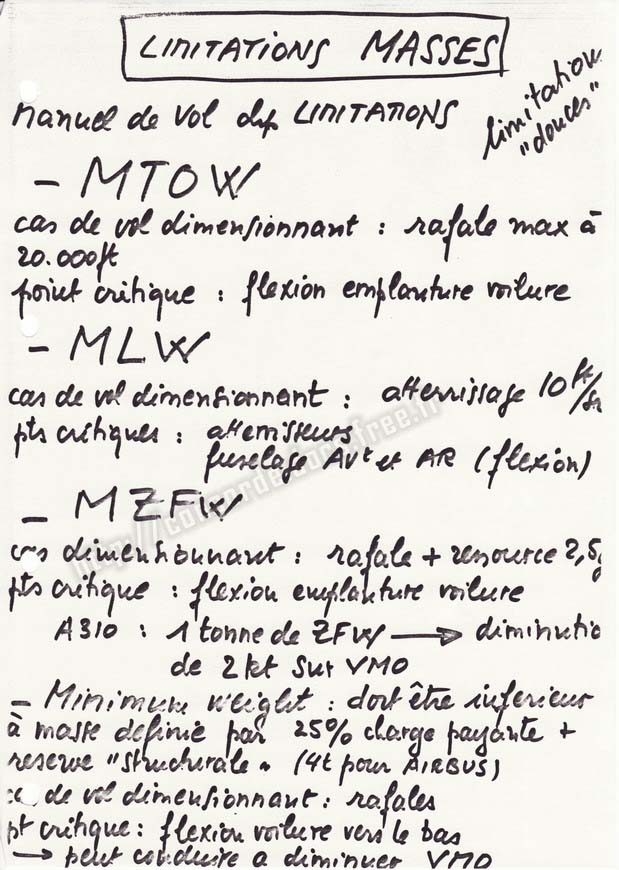 LIMITATIONS MASSES
Manuel de vol chp LIMITATIONS
limitation
"douces"
- MTOW
cas de vol dimensionnant : rafale max à
20.000ft
point critique : flexion emplanture voilure
- MLW
cas de vol dimensionnant : atterrissage 10 ft/s
pts critiques : atterrisseurs
fuselage AVt et AR (flexion)
- MZFW
cas dimensionnant : rafale + ressource 2,5g
pts critique : flexion emplanture voilure
A310 : 1 tonne de ZFW → diminutio
de 2kt sur VMO
- Minimum weight : doit être inferieur
à masse definie par 25% charge payante +
reserve "structurale" (4t pour AIRBUS)
de vol dimensionnant : rafales
pt critique : flexion voilure vers le bas
→ peut conduire a diminuer VMO